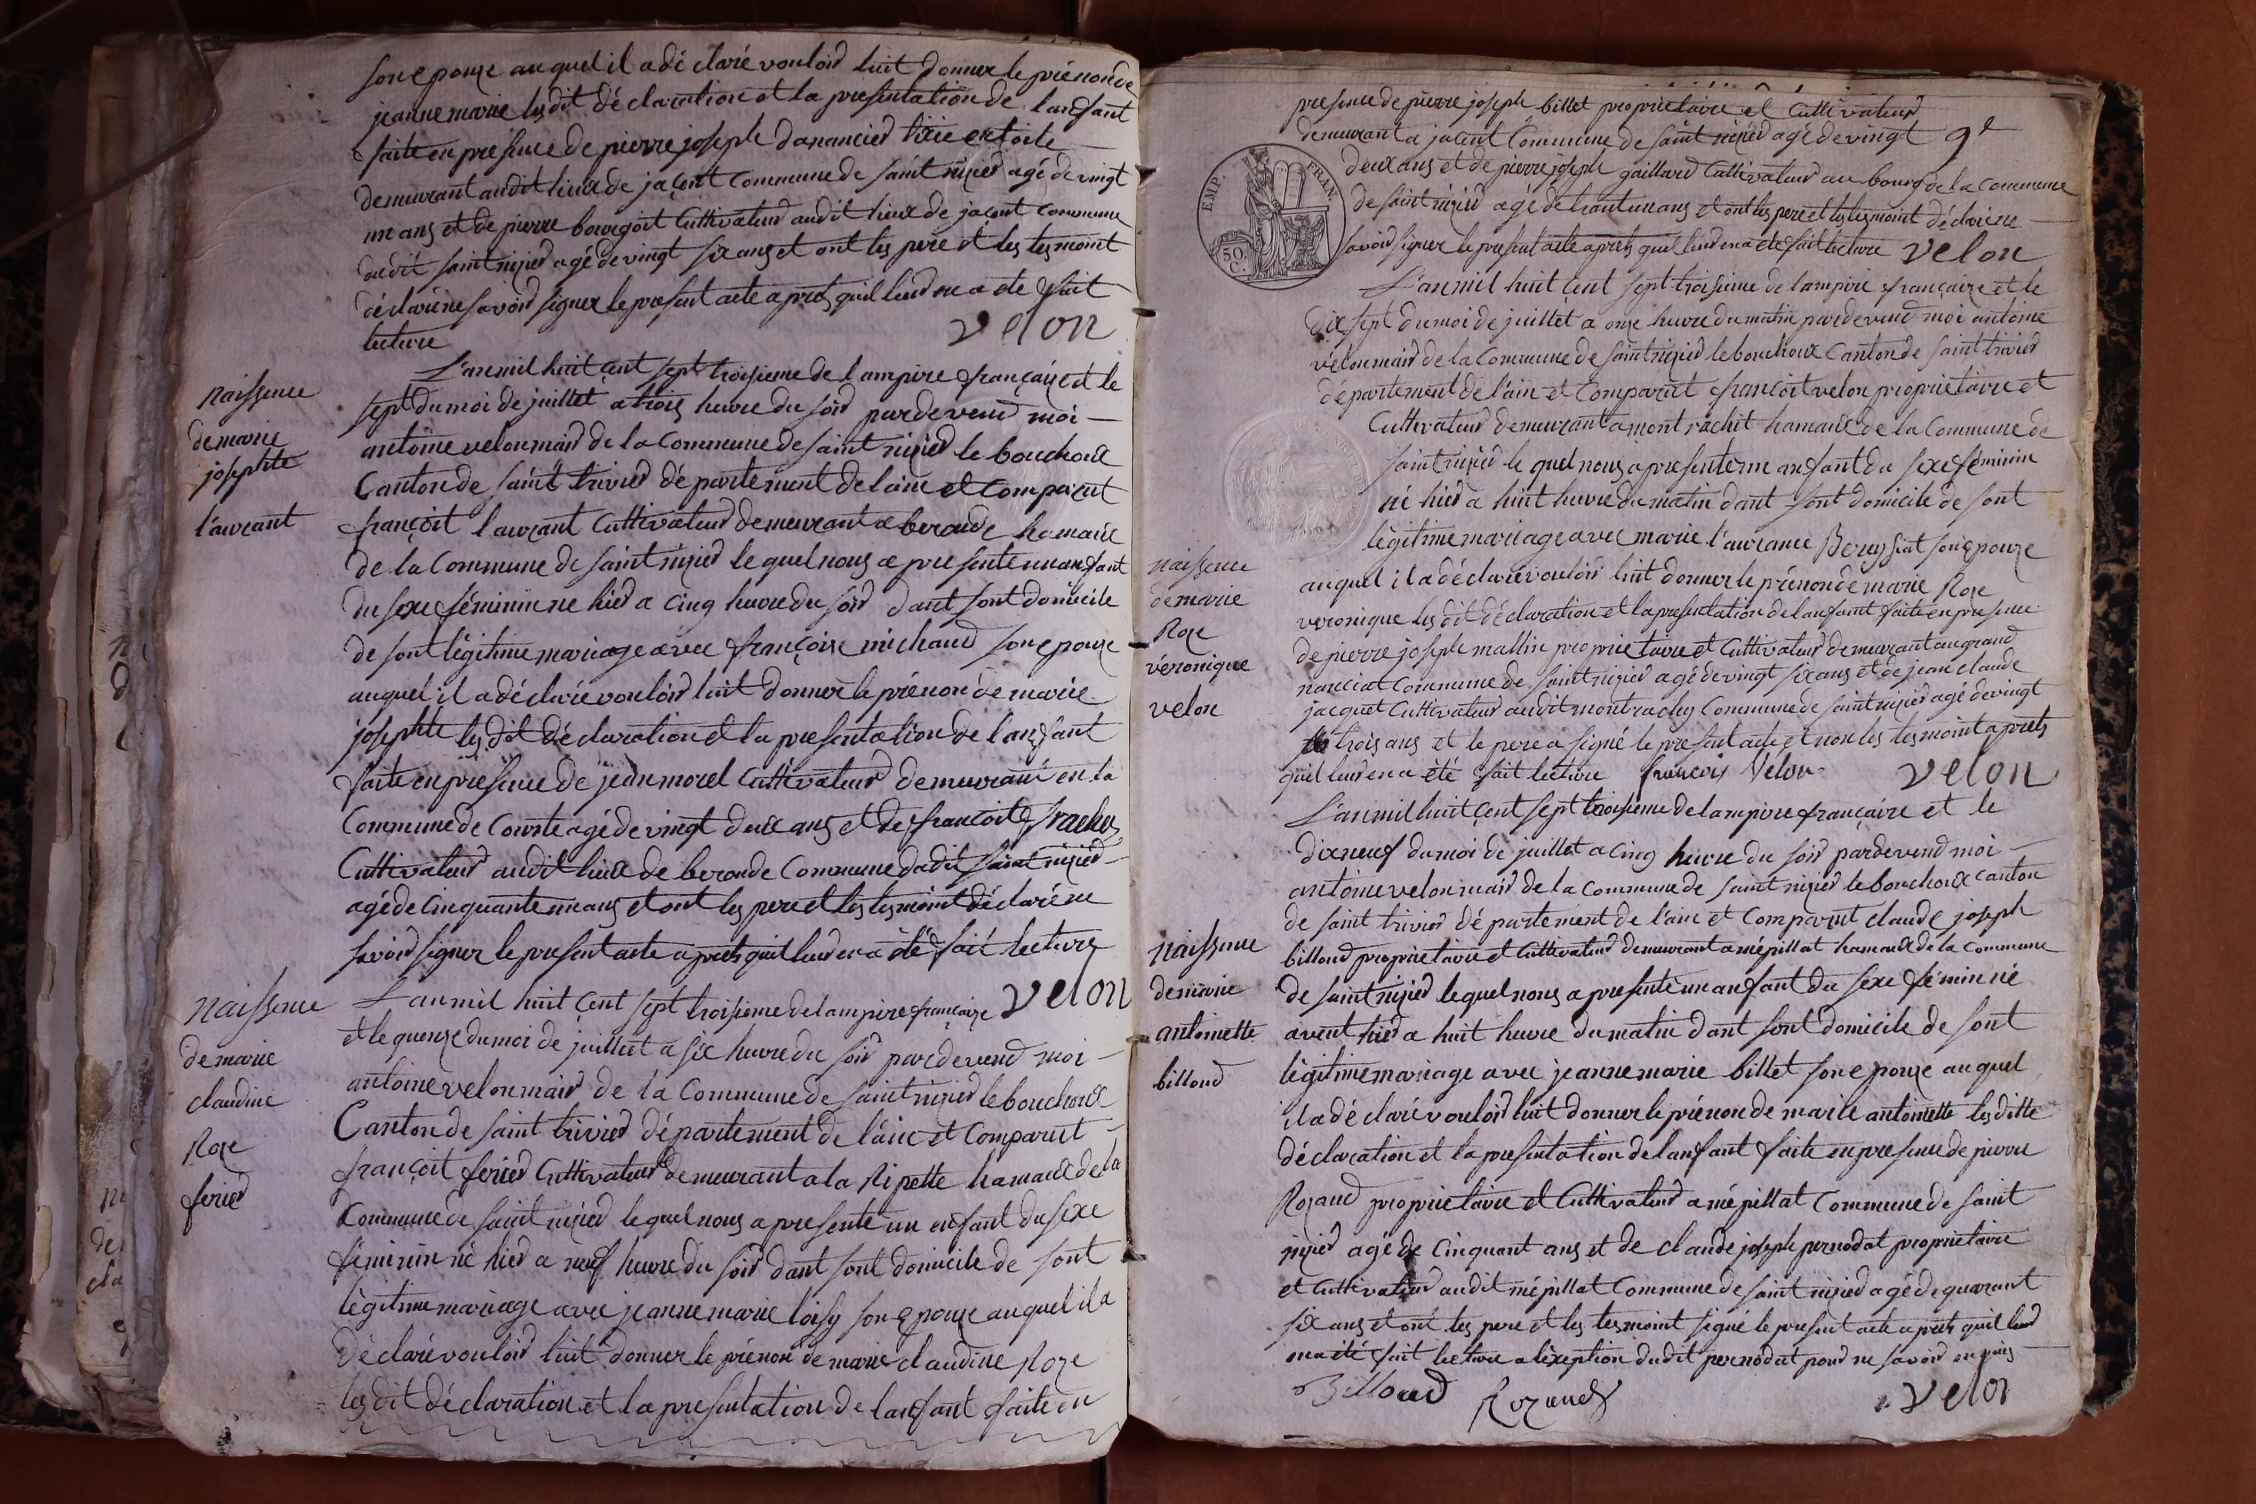 son epouze auquel il a dé claré vouloir luit donner le prénon de
jeanne marie lesdit déclaration et la presentation de l'anfant
faite en présence de pierre joseph danancier en toile
demeurant audit lieux de jaçent commune de saint nizier agé de vingt
un ans et de pierre bourgoit cultivateur audit lieux de jaçent commune
dudit saint nizier agé de vingt six ans et ont les pere et les tesmoint
déclaré ne savoir signer le present acte aprets quil leur en a ete fait
lecture velon
L'an mil huit çent sept troisieme de l'ampire françaize et le
sept du moi de juillet a trois heure du soir pardevend moi
antoine velon mair de la commune de saint nizier le bouchoux
Canton de saint trivier département de l'ain et comparut
françoit l'aurant cultivateur demeurant a beronde hamaux
de la commune de saint nizier le quel nous a presente un anfant
du sexe féminin ne hier a cinq heure du soir dant sont domicile
de sont légitime mariage avec françoize michaud son epouze
auquel il a déclaré vouloir luit donner le prénon de marie
josephte lesdit déclaration et la presentation de l'anfant
faite en presence de jean morel cultivateur demeurant en la
Commune de Courte agé de vingt deux ans et de françoit
Cultivateur audit lieux de beronde commune dudit saint nizier
agé de cinquante un ans et ont les pere et les tesmoint déclaré ne
savoir signer le present acte aprets quil leur en a été fait lecture
velon
naissence
de marie
josephte
l'aurant
L'an mil huit çent sept troisieme de l'ampire françaize
et le quenze du moi de juillet a six heure du soir pardevend moi
antoine velon mair de la commune de saint nizier le bouchoux
Canton de saint trivier département de l'ain et comparut
françoit ferier cultivateur demeurant a la Ripette hamaux de la
commune de saint nizier le quel nous a presente un enfant du sexe
féminin né hier a neuf heure du soir dant sont domicile de sont
légitime mariage avec jeanne marie loisy son epouze auquel il a
déclaré vouloir luit donner le prénon de marie claudine Roze
lesdit déclaration et la presentation de l'anfant faite en
naissence
de marie
claudine
Roze
ferier
presence de pierre joseph billet proprietaire et cultivateur
demeurant a jacent commune de saint nizier agé de vingt
deux ans et de pierre joseph gaillard cultivateur au bourg de la commune
de saint nizier agé de trante un ans et ont les pere et les tesmoint déclaré ne
savoir signer le present acte aprets quil leur en a été fait lecture velon
9e
EMP. FRAN.
50 C.
L'an mil huit çent sept troisieme de l'ampire françaize et le
dix sept du moi de juillet a onze heure du matin pardevend moi antoine
velon mair de la commune de saint nizier le bouchoux Canton de saint trivier
département de l'ain et comparut françoit velon proprietaire et
Cultivateur demeurant a mont rachit hamaux de la commune de
saint nizier le quel nous a presente un anfant du sexe féminin
né hier a huit heure du matin dant sont domicile de sont
légitime mariage avec marie l'aurance son epouze
auquel il a déclaré vouloir luit donner le prénon de marie Roze
veronique lesdit déclaration et la presentation de l'anfant faite en presence
de pierre joseph mallin proprietaire et Cultivateur demeurant au grand
nanciat commune de saint nizier agé de vingt six ans et de jean claude
jacquet Cultivateur audit montrachy commune de saint nizier agé de vingt
trois ans et le pere a signé le present acte et non les tesmoint aprets
quil leur en a été fait lecture françois Velon velon
naissence
de marie
Roze
véronique
velon
L'an mil huit çent sept troisieme de l'ampire françaize et le
dix neuf du moi de juillet a cinq heure du soir pardevend moi
antoine velon mair de la commune de saint nizier le bouchoux canton
de saint trivier département de l'ain et comparut claude joseph
billoud proprietaire et Cultivateur demeurant a mépillat hamaux de la commune
de saint nizier lequel nous a presente un anfant du sexe fémin né
avent hier a huit heure du matin dant sont domicile de sont
légitime mariage avec jeanne marie billet son epouze auquel
il a dé claré vouloir luit donner le prénon de marie antoinette lesditte
déclaration et la presentation de l'anfant faite en presence de pierre
Rozand proprietaire et Cultivateur a mépillat commune de saint
nizier agé de cinquant ans et de claude joseph pernodat proprietaire
et cultivateur audit mépillat commune de saint nizier agé de quarant
six ans et ont les pere et les tesmoint signé le present acte aprets quil leur
en a été fait lecture a l'exeption dudit pernodat pour ne savoir
Billoud Rozand velon
naissence
de marie
antoinette
billoud